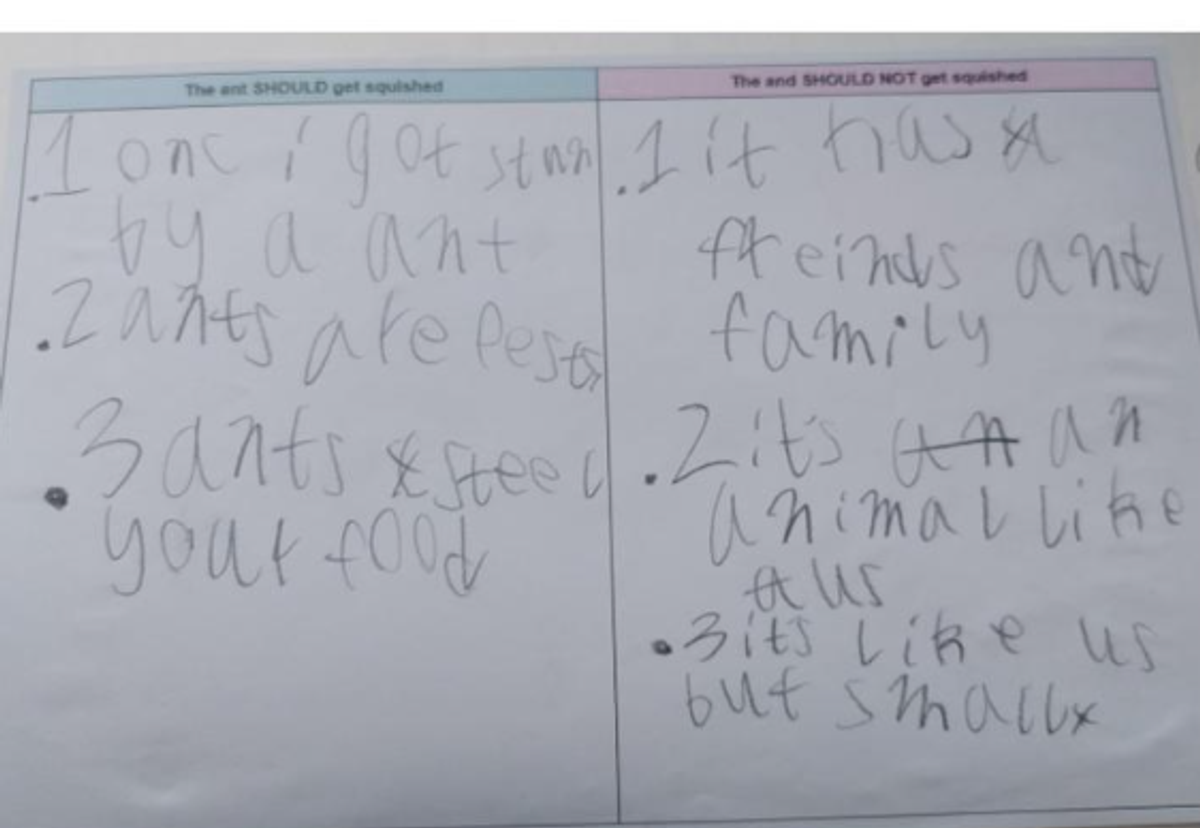 The ant SHOULD get squished
.1 onc i got stnn
by a ant
.2 ants are Pests
.3 ants steel
your food
The and SHOULD NOT get squished
.1 it has
freinds and
family
.2 its an
animal like
us
.3 its like us
but small